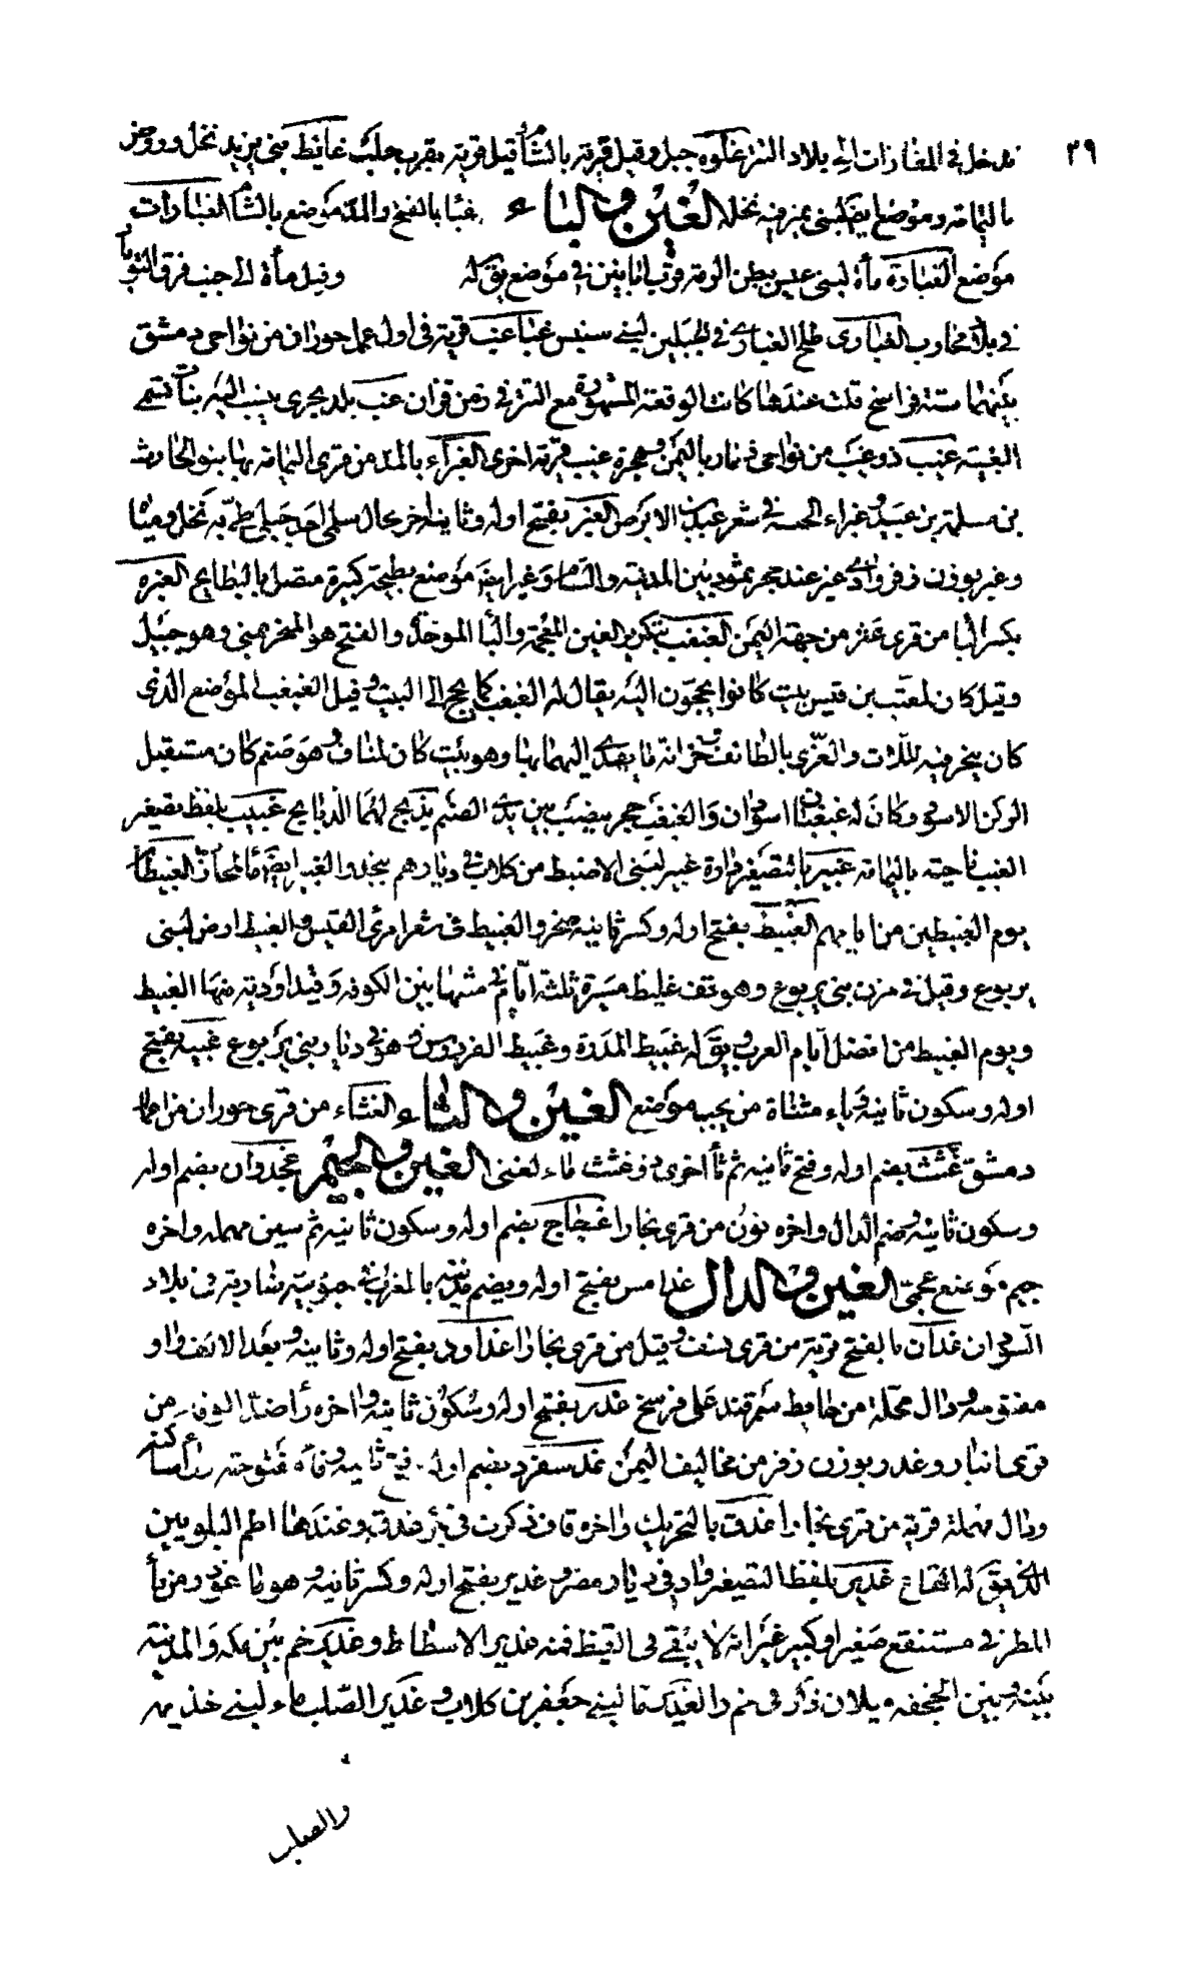 ٢٩
تدخل في المغازات الى بلاد التتر غلوه جبل وقيل قرية بالشأم قيل قرية بقرب حلب غايط بني يزيد نخل وروض
باليمامة وموضع ايضا لبني نمير فيه نخله الغين والباء غبا بالفتح والمد موضع بالشام الغبارات
موضع الغبارة مأة لبني عبس ببطن الرمة قرب ابانين في موضع يقال له وقيل مأة الى جنب قرن التوباذ
في بلاد محارب الغبارى طلح الغبارى في الجبلين لبني سنبس غباغب قرية في اول عمل حوران من نواحي دمشق
بينهما ستة فراسخ قلت عندها كانت الوقعة المشهورة مع التتر في زمن قزان غبب بلد بحري ينسب اليه بنات تسمى
الغببية غبب ذو غبب من نواحي ذمار باليمن وهجرة غبب قرية اخرى الغبراء بالمد من قرى اليمامة بها بنو الحارث
بن مسلمة بن عبيد وغبراء الحمه في شعر عبيد بن الابرص الغبر بفتح اوله وثانيه اخر محال سلمى احد جبلي طي به نخل ومياه
وغبر بوزن زفر وادي غبر عند حجر ثمود بين المدينة والشام وغبر ايضا موضع بطيحة كبيرة متصل بالبطايح الغبره
بكسر البا من قرى عثر من جهة اليمن الغبغب بتكرير الغين المعجمة والبا الموحدة والفتح هو المنحر بمنى وهو جبيل
وقيل كان لمعتب بن قيس بيت كانوا يحجون اليه يقال له الغبغب كما يحج الى البيت وقيل الغبغب الموضع الذي
كان ينحر فيه للات والعزى بالطائف خزانة ما يهدى اليهما بها وهو بيت كان لمناف وهو صنم كان مستقبل
الركن الاسود وكان له غبغبان اسودان والغبغب حجر ينصب بين يدي الصنم يذبح لهما الذبايح غبيب بلفظ تصغير
الغبب ناحية باليمامة غبير بالتصغير دارة غبير لبني الاضبط من كلاب في ديارهم بنجد والغبير ايضا ماء لمحارب الغبيطان
يوم الغبيطين من ايامهم الغبيط بفتح اوله وكسر ثانيه صخر والغبيط في شعر امرئ القيس والغبيط ارض لبني
يربوع وقيل في حزن بني يربوع وهو قف غليظ مسيرة ثلثة ايام في مثلها بين الكوفة وفيد اودية منها الغبيط
ويوم الغبيط من افضل ايام العرب ويقال له غبيط المدرة وغبيط الفردوس وهو في ديار بني يربوع غبية بفتح
اوله وسكون ثانيه وياء مثناة من يجبه موضع الغين والثاء الغثاء من قرى حوران من اعمال
دمشق غثث بضم اوله وفتح ثانيه ثم ثا اخرى ذو غثث ماء لغني الغين والجيم غجدوان بضم اوله
وسكون ثانيه وضم الدال واخره نون من قرى بخارا غجساج بضم اوله وسكون ثانيه ثم سين مهملة واخره
جيم موضع عجمي الغين والدال غدامس بفتح اوله ويضم مدينة بالمغرب في جنوبيه ضاربة في بلاد
السودان غدان بالفتح قرية من قرى نسف وقيل من قرى بخارا غداود بفتح اوله وثانيه وبعد الالف واو
مفتوحة ودال محلة من حايط سمرقند على فرسخ غدر بفتح اوله وسكون ثانيه واخره رأ ضد الوفا من
قرى انبار وغدر بوزن زفر من مخاليف اليمن غدشفرد بضم اوله وفتح ثانيه وفاء مفتوحة راء ساكنة
ودال مهملة قرية من قرى بخارا غدق بالتحريك واخره قاف ذكرت في بئر غدق وعندها اطم البلويين
الذي يقال له القاع غدير بلفظ التصغير واد في ديار مضر وغدير بفتح اوله وكسر ثانيه وهو ما غودر من مأ
المطر في مستنقع صغير او كبير غير انه لا يبقى في القيظ فمنه غدير الاشطاط وغدير خم بين مكه والمدينة
بينه وبين الجحفه ميلان ذكر في خم والغدير ما لبني جعفر بن كلاب وغدير الصلب ماء لبني خذيمه
والصلب